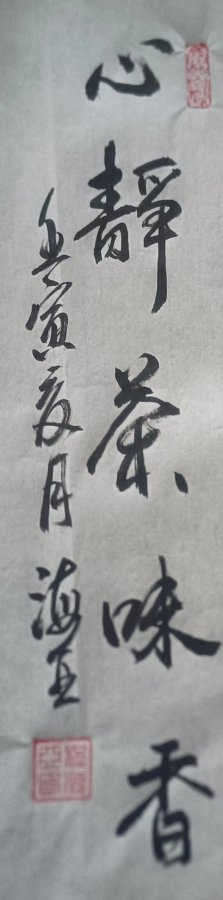 心靜茶味香
壬寅夏月 海亚